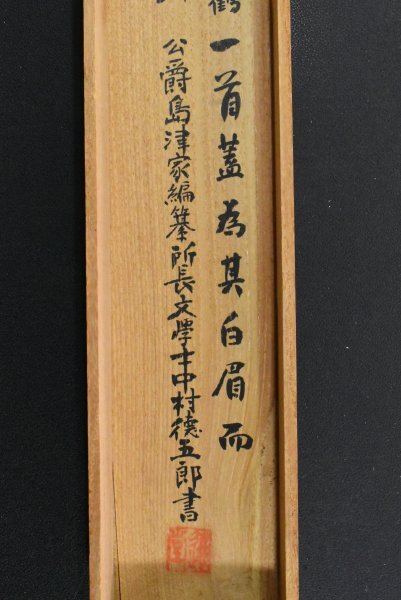 鶴一首蓋為其白眉而
公爵島津家編纂所長文學士中村德五郎書